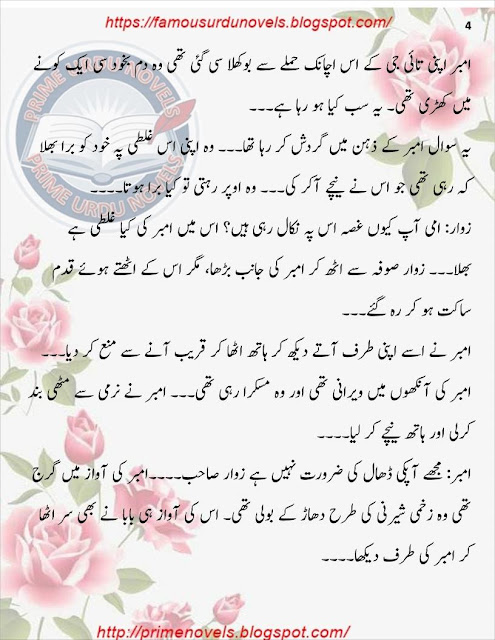 https://famousurdunovels.blogspot.com/
4
امبر اپنی تائی جی کے اس اچانک حملے سے بوکھلا سی گئی تھی وہ دم بخود سی ایک کونے
میں کھڑی تھی۔ یہ سب کیا ہو رہا ہے۔۔۔
یہ سوال امبر کے ذہن میں گردش کر رہا تھا۔۔۔ وہ اپنی اس غلطی پہ خود کو برا بھلا
کہ رہی تھی جو اس نے نیچے آ کر کی۔۔۔ وہ اوپر رہتی تو کیا برا ہوتا۔۔۔۔
زوار: امی آپ کیوں غصہ اس پہ نکال رہی ہیں؟ اس میں امبر کی کیا غلطی ہے
بھلا۔۔۔ زوار صوفہ سے اٹھ کر امبر کی جانب بڑھا، مگر اس کے اٹھتے ہوئے قدم
ساکت ہو کر رہ گئے۔۔۔
امبر نے اسے اپنی طرف آتے دیکھ کر ہاتھ اٹھا کر قریب آنے سے منع کر دیا۔۔۔
امبر کی آنکھوں میں ویرانی تھی اور وہ مسکرا رہی تھی۔۔۔ امبر نے نرمی سے مٹھی بند
کرلی اور ہاتھ نیچے کر لیا۔۔۔۔
امبر: مجھے آپکی ڈھال کی ضرورت نہیں ہے زوار صاحب۔۔۔۔امبر کی آواز میں گرج
تھی وہ زخمی شیرنی کی طرح دھاڑ کے بولی تھی۔ اس کی آواز ہی بابا نے بھی سر اٹھا
کر امبر کی طرف دیکھا۔۔۔۔
PRIME URDU NOVELS
PRIME URDU NOVELS
http://primenovels.blogspot.com/